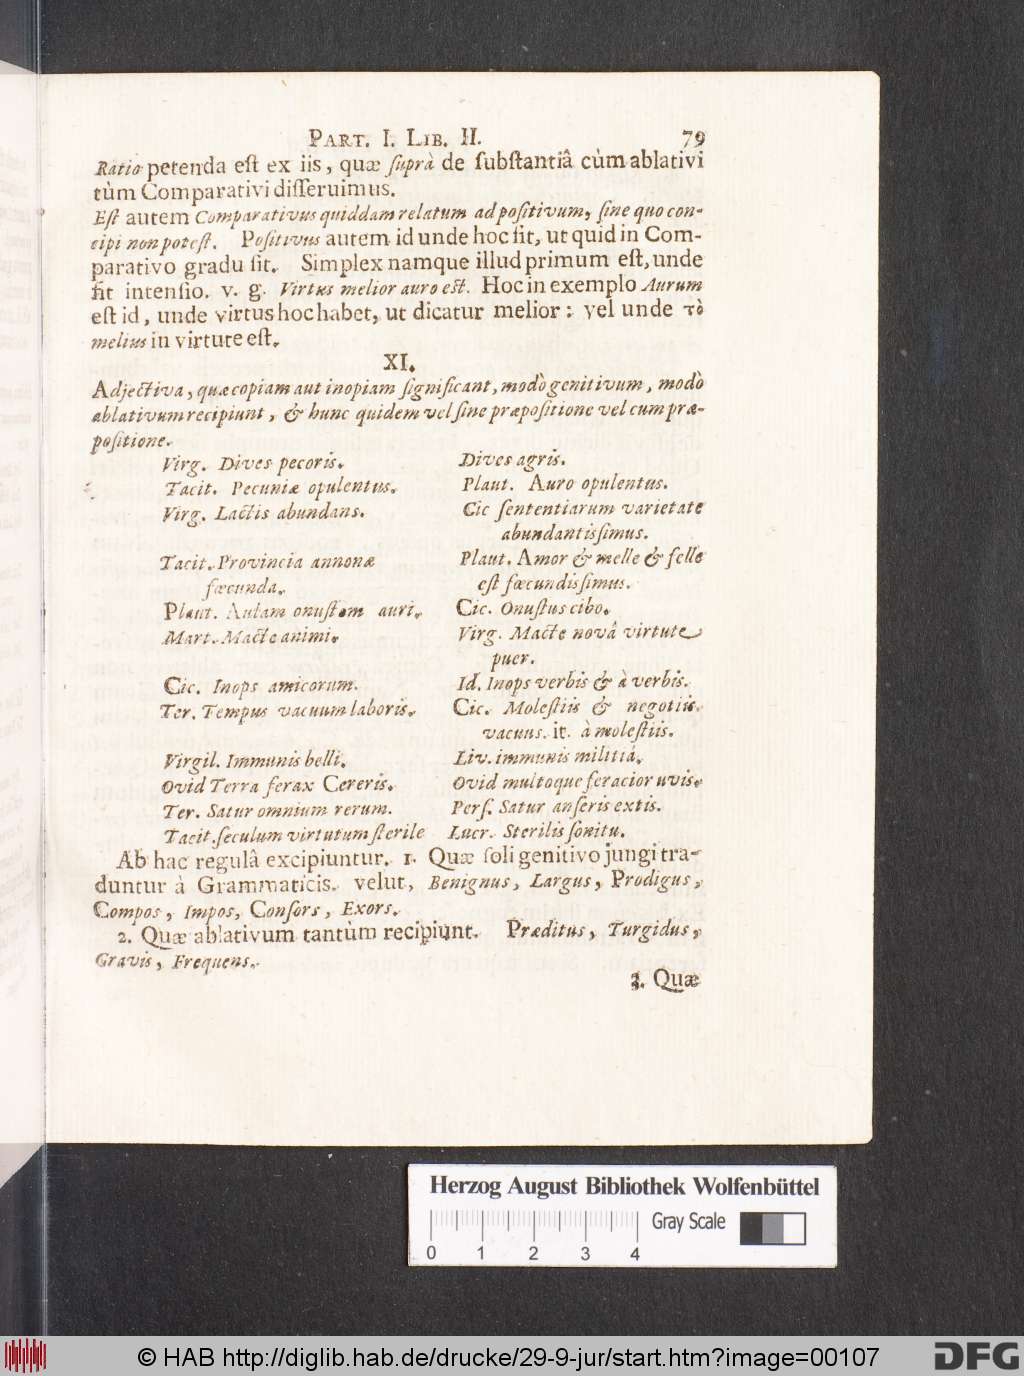 PART. I. LIB. II. 79
Ratio petenda eſt ex iis, quæ ſuprà de ſubſtantiâ cùm ablativi
tùm Comparativi diſſeruimus.
Eſt autem Comparativus quiddam relatum ad poſitivum, ſine quo con-
cipi non poteſt. Poſitivus autem id unde hoc ſit, ut quid in Com-
parativo gradu ſit. Simplex namque illud primum eſt, unde
fit intenſio. v. g. Virtus melior auro eſt. Hoc in exemplo Aurum
eſt id, unde virtus hoc habet, ut dicatur melior: vel unde τὸ
melius in virtute eſt.
XI.
Adjectiva, quæ copiam aut inopiam ſignificant, modò genitivum, modò
ablativum recipiunt, & hunc quidem vel ſine præpoſitione vel cum præ-
poſitione.
Virg. Dives pecoris. Dives agris.
Tacit. Pecuniæ opulentus. Plaut. Auro opulentus.
Virg. Lactis abundans. Cic ſententiarum varietate
abundantiſſimus.
Tacit. Provincia annonæ Plaut. Amor & melle & felle
fœcunda. eſt fœcundiſſimus.
Plaut. Aulam onuſtam auri. Cic. Onuſtus cibo.
Mart. Macte animi. Virg. Macte novâ virtute
puer.
Cic. Inops amicorum. Id. Inops verbis & à verbis.
Ter. Tempus vacuum laboris. Cic. Moleſtiis & negotiis
vacuus. it. à moleſtiis.
Virgil. Immunis belli. Liv. immunis militiâ.
Ovid Terra ferax Cereris. Ovid multoque feracior uvis.
Ter. Satur omnium rerum. Perſ. Satur anſeris extis.
Tacit. ſeculum virtutum ſterile Lucr. Sterilis ſonitu.
Ab hac regulâ excipiuntur. 1. Quæ ſoli genitivo jungi tra-
duntur à Grammaticis. velut, Benignus, Largus, Prodigus,
Compos, Impos, Conſors, Exors.
2. Quæ ablativum tantùm recipiunt. Præditus, Turgidus,
Gravis, Frequens.
3. Quæ
Herzog August Bibliothek Wolfenbüttel
Gray Scale
0 1 2 3 4
© HAB http://diglib.hab.de/drucke/29-9-jur/start.htm?image=00107
DFG